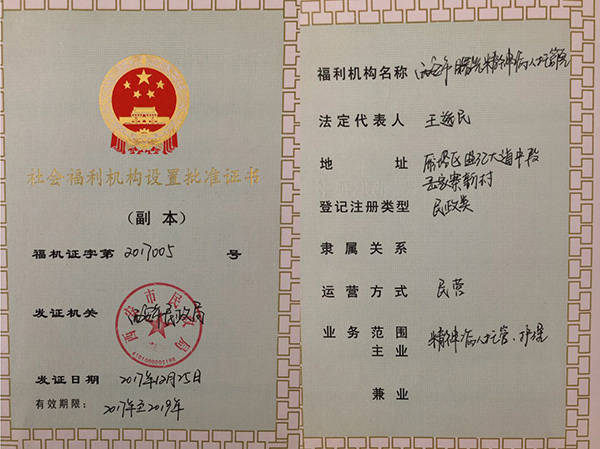 社会福利机构设置批准证书
(副本)
福机证字第 2017005 号
发证机关 西安市民政局
西安市民政局
发证日期 2017年12月25日
有效期限: 2017年至2019年
福利机构名称 西安市曙光精神病人托管
法定代表人 王遂民
地址 雁塔区世纪大道中段
岳家寨新村
登记注册类型 民政类
隶属关系
运营方式 民营
业务范围
主业 精神病人托管、护理
兼业